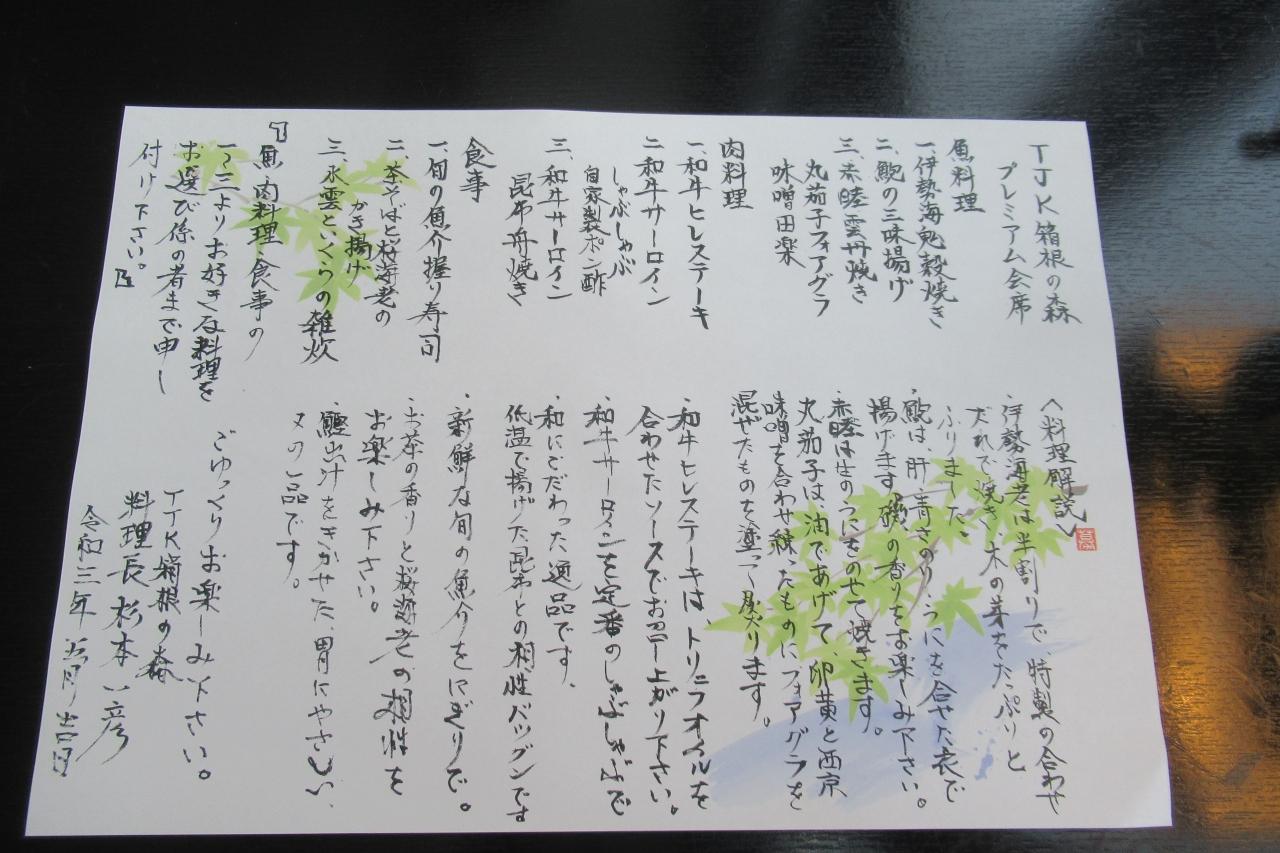 TJK箱根の森
プレミアム会席
魚料理
一、伊勢海老殻焼き
二、鮑の三味揚げ
三、赤睦雲丹焼き
丸茄子フォアグラ
味噌田楽
肉料理
一、和牛ヒレステーキ
二、和牛サーロイン
しゃぶしゃぶ
自家製ポン酢
三、和牛サーロイン
昆布舟焼き
食事
一、旬の魚介握り寿司
二、茶そばと桜海老の
かき揚げ
三、水雲といくらの雑炊
『魚、肉料理、食事の
一〜三よりお好きな料理を
お選び係の者まで申し
付け下さい。』
〈料理解説〉
・伊勢海老は半割りで、特製の合わせ
だれで焼き、木の芽をたっぷりと
ふりました。
・鮑は、肝、青さのり、うにを合せた衣で
揚げます。磯の香りをお楽しみ下さい。
・赤睦は生のうにをのせて焼きます。
丸茄子は油であげて、卵黄と西京
味噌を合わせ練ったものにフォアグラを
混ぜたものを塗って炙ります。
・和牛ヒレステーキは、トリュフオイルを
合わせたソースでお召し上がり下さい。
・和牛サーロインを定番のしゃぶしゃぶで
・和にこだわった逸品です。
低温で揚げた昆布との相性バツグンです
・新鮮な旬の魚介をにぎりで。
・お茶の香りと桜海老の相性を
お楽しみ下さい。
・鰹出汁をきかせた胃にやさしい、
〆の一品です。
ごゆっくりお楽しみ下さい。
TJK箱根の森
料理長 杉本 一彦
令和三年 五月吉日